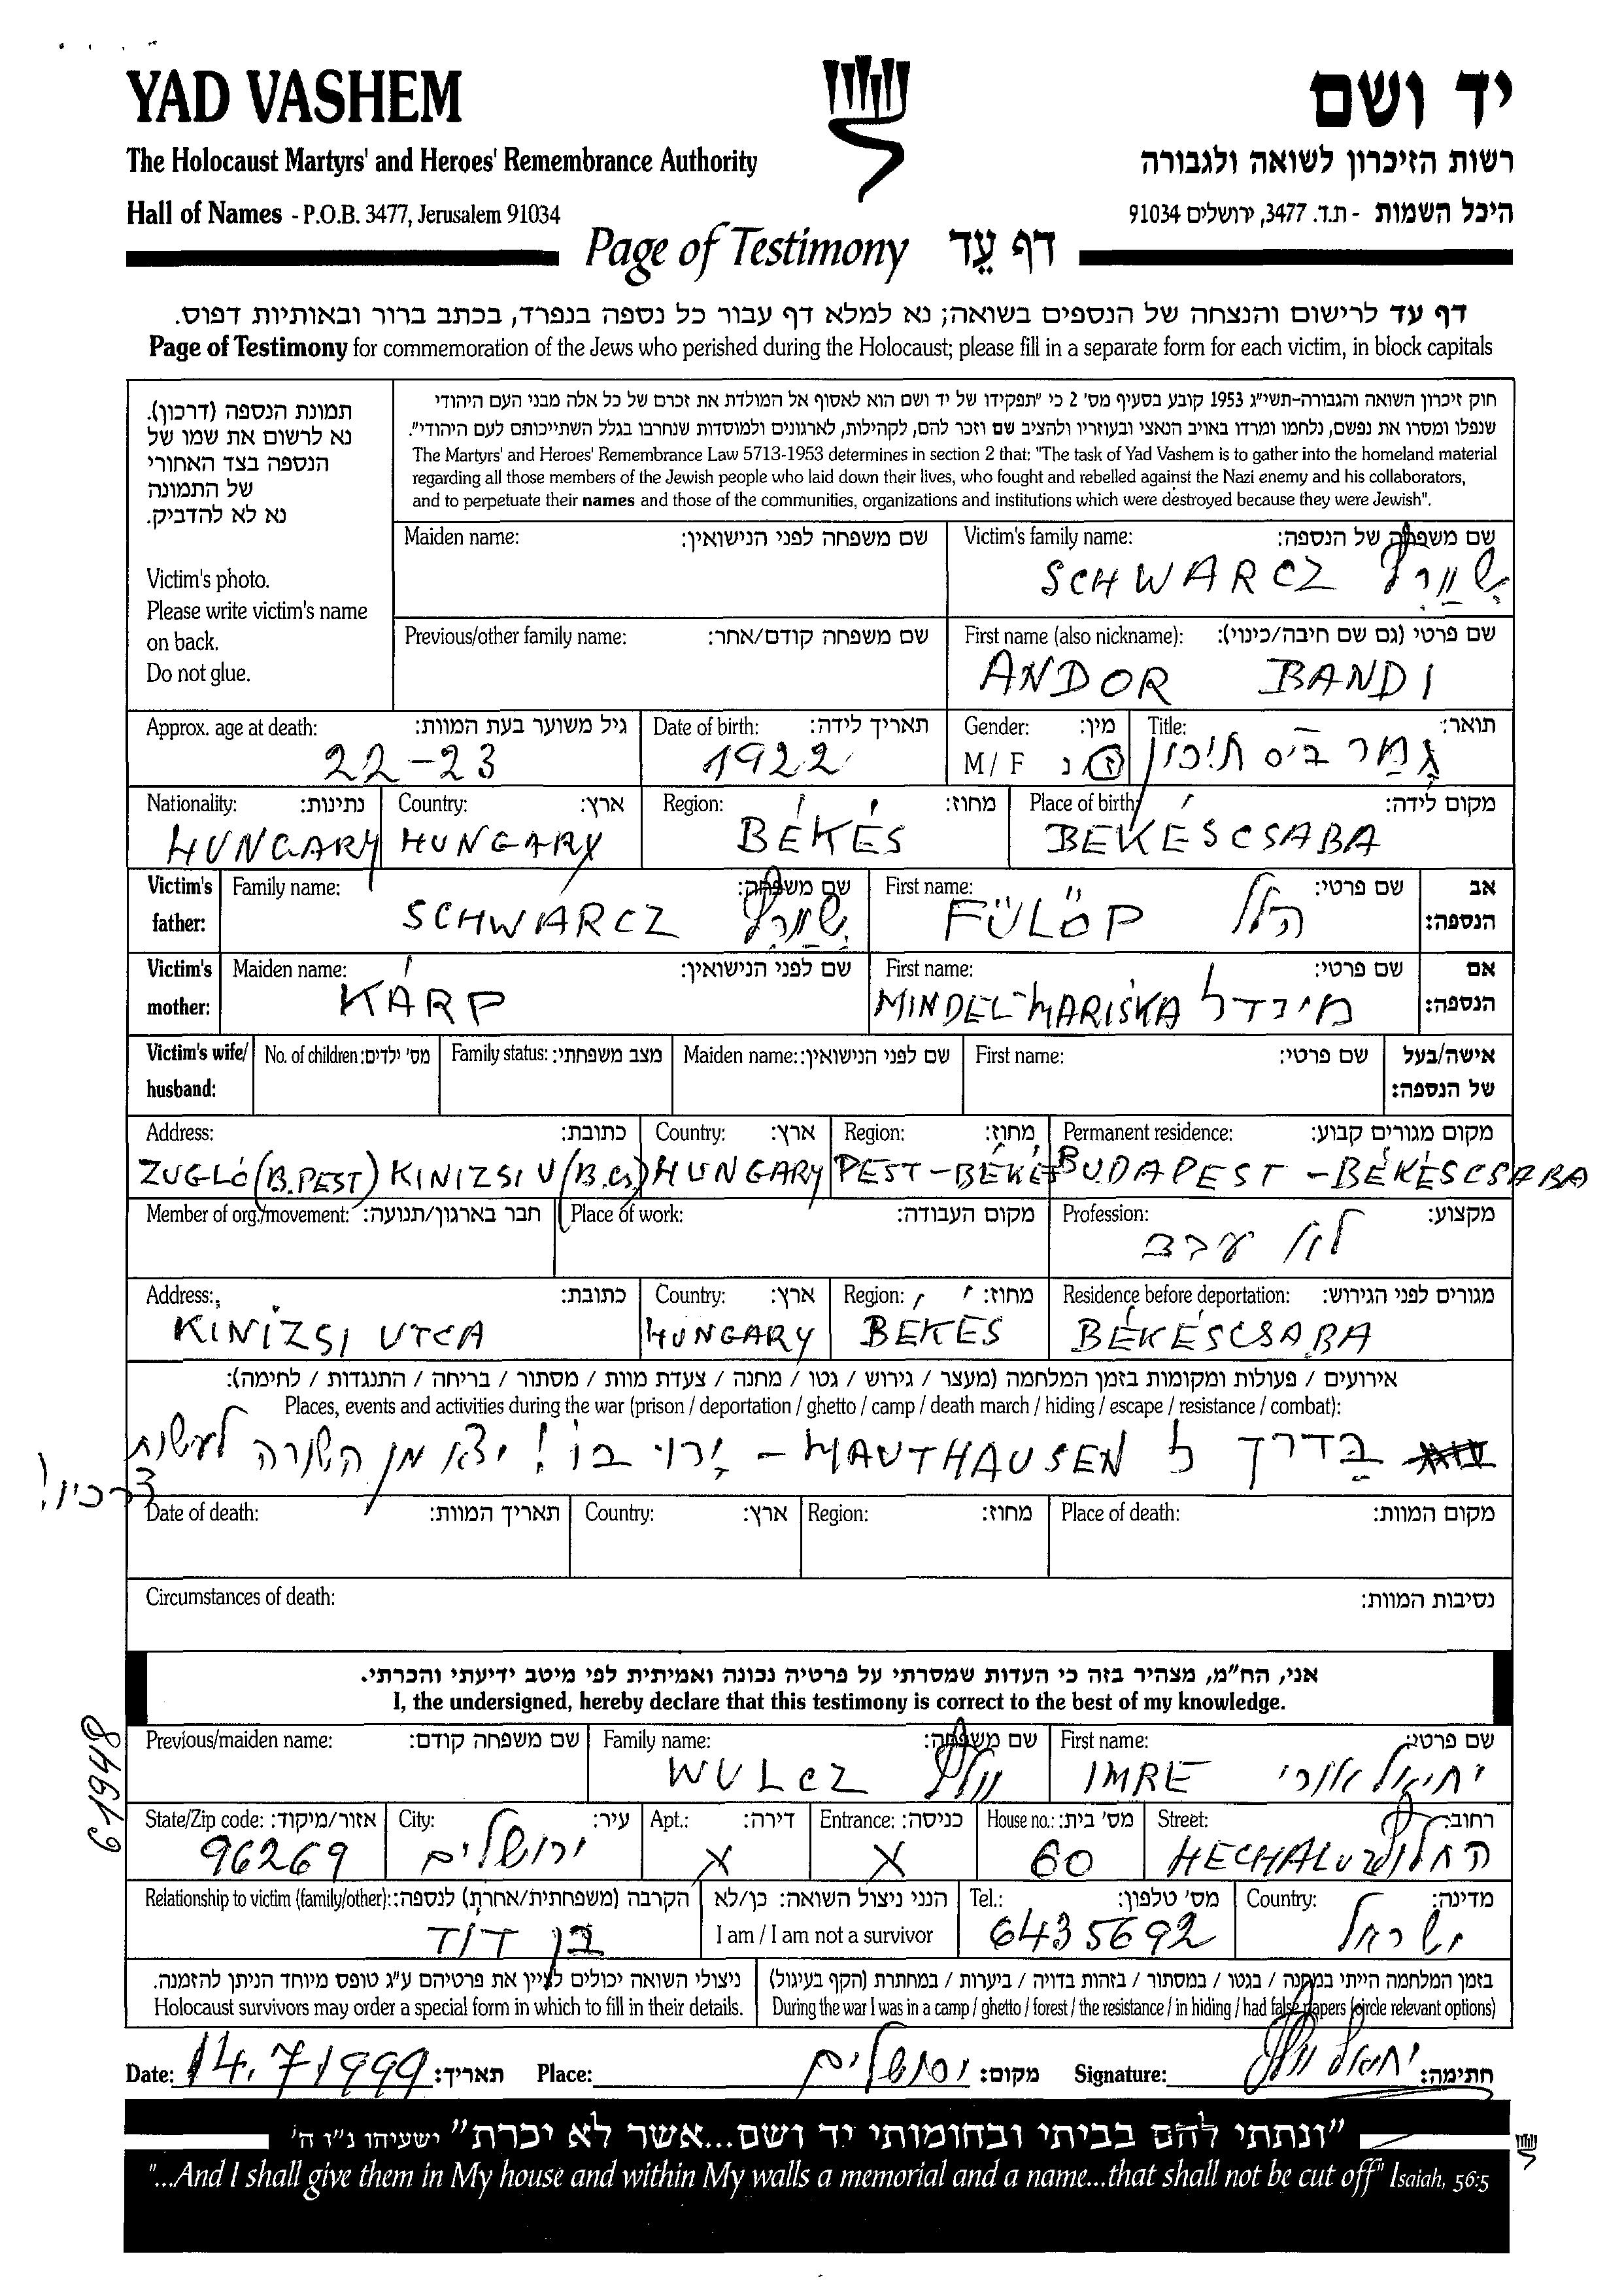 YAD VASHEM
יד ושם
The Holocaust Martyrs' and Heroes' Remembrance Authority
רשות הזיכרון לשואה ולגבורה
Hall of Names - P.O.B. 3477, Jerusalem 91034
היכל השמות - ת.ד. 3477, ירושלים 91034
Page of Testimony דף עֵד
דף עד לרישום והנצחה של הנספים בשואה; נא למלא דף עבור כל נספה בנפרד, בכתב ברור ובאותיות דפוס.
Page of Testimony for commemoration of the Jews who perished during the Holocaust; please fill in a separate form for each victim, in block capitals
תמונת הנספה (דרכון).
נא לרשום את שמו של
הנספה בצד האחורי
של התמונה
נא לא להדביק.
Victim's photo.
Please write victim's name
on back.
Do not glue.
חוק זיכרון השואה והגבורה-תשי"ג 1953 קובע בסעיף מס' 2 כי "תפקידו של יד ושם הוא לאסוף אל המולדת את זכרם של כל אלה מבני העם היהודי
שנפלו ומסרו את נפשם, נלחמו ומרדו באויב הנאצי ובעוזריו ולהציב שם וזכר להם, לקהילות, לארגונים ולמוסדות שנחרבו בגלל השתייכותם לעם היהודי".
The Martyrs' and Heroes' Remembrance Law 5713-1953 determines in section 2 that: "The task of Yad Vashem is to gather into the homeland material
regarding all those members of the Jewish people who laid down their lives, who fought and rebelled against the Nazi enemy and his collaborators,
and to perpetuate their names and those of the communities, organizations and institutions which were destroyed because they were Jewish".
Maiden name: שם משפחה לפני הנישואין:
Victim's family name: שם משפחה של הנספה:
SCHWARCZ שְוַרְץ
Previous/other family name: שם משפחה קודם/אחר:
First name (also nickname): שם פרטי (גם שם חיבה/כינוי):
ANDOR BANDI
Approx. age at death: גיל משוער בעת המוות:
22-23
Date of birth: תאריך לידה:
1922
Gender: מין:
M / F ז נ
Title: תואר:
גמר ביס תיכון
Nationality: נתינות:
HUNGARY
Country: ארץ:
HUNGARY
Region: מחוז:
BÉKÉS
Place of birth: מקום לידה:
BÉKÉSCSABA
Victim's father: אב הנספה:
Family name: שם משפחה:
SCHWARCZ שְוַרְץ
First name: שם פרטי:
FÜLÖP הלל
Victim's mother: אם הנספה:
Maiden name: שם לפני הנישואין:
KÁRP
First name: שם פרטי:
MINDEL-MARISKA מינדל
Victim's wife/ husband: אישה/בעל של הנספה:
No. of children: מס' ילדים:
Family status: מצב משפחתי:
Maiden name: שם לפני הנישואין:
First name: שם פרטי:
Address: כתובת:
ZUGLÓ (B.PEST) KINIZSI U (B.Cs.)
Country: ארץ:
HUNGARY
Region: מחוז:
PEST-BÉKÉ
Permanent residence: מקום מגורים קבוע:
BUDAPEST - BÉKÉSCSABA
Member of org./movement: חבר בארגון/תנועה:
Place of work: מקום העבודה:
Profession: מקצוע:
לא עבד
Address: כתובת:
KINIZSI UTCA
Country: ארץ:
HUNGARY
Region: מחוז:
BÉKÉS
Residence before deportation: מגורים לפני הגירוש:
BÉKÉSCSABA
אירועים / פעולות ומקומות בזמן המלחמה (מעצר / גירוש / גטו / מחנה / צעדת מוות / מסתור / בריחה / התנגדות / לחימה):
Places, events and activities during the war (prison / deportation / ghetto / camp / death march / hiding / escape / resistance / combat):
בַּדרך ל MAUTHAUSEN - יָרוּ בוֹ! יצא מן השורה לעשות
צרכיו!
Date of death: תאריך המוות:
Country: ארץ:
Region: מחוז:
Place of death: מקום המוות:
Circumstances of death: נסיבות המוות:
אני, הח"מ, מצהיר בזה כי העדות שמסרתי על פרטיה נכונה ואמיתית לפי מיטב ידיעתי והכרתי.
I, the undersigned, hereby declare that this testimony is correct to the best of my knowledge.
6-1948
Previous/maiden name: שם משפחה קודם:
Family name: שם משפחה:
WULCZ וולץ
First name: שם פרטי:
IMRE יחיאל אורי
State/Zip code: אזור/מיקוד:
96269
City: עיר:
ירושלים
Apt.: דירה:
X
Entrance: כניסה:
X
House no.: מס' בית:
60
Street: רחוב:
HECHALUTZ החלוץ
Relationship to victim (family/other): הקרבה (משפחתית/אחרת) לנספה:
בן דוד
הנני ניצול השואה: כן/לא
I am / I am not a survivor
Tel.: מס' טלפון:
6435692
Country: מדינה:
ישראל
ניצולי השואה יכולים לציין את פרטיהם ע"ג טופס מיוחד הניתן להזמנה.
Holocaust survivors may order a special form in which to fill in their details.
בזמן המלחמה הייתי במחנה / בגטו / במסתור / בזהות בדויה / ביערות / במחתרת (הקף בעיגול)
During the war I was in a camp / ghetto / forest / the resistance / in hiding / had false papers (circle relevant options)
Date: 14.7 1999 תאריך: Place: ירושלים מקום: Signature: יחיאל וולץ חתימה:
"ונתתי להם בביתי ובחומותי יד ושם...אשר לא יכרת" ישעיהו נ"ו ה'
"...And I shall give them in My house and within My walls a memorial and a name...that shall not be cut off" Isaiah, 56:5